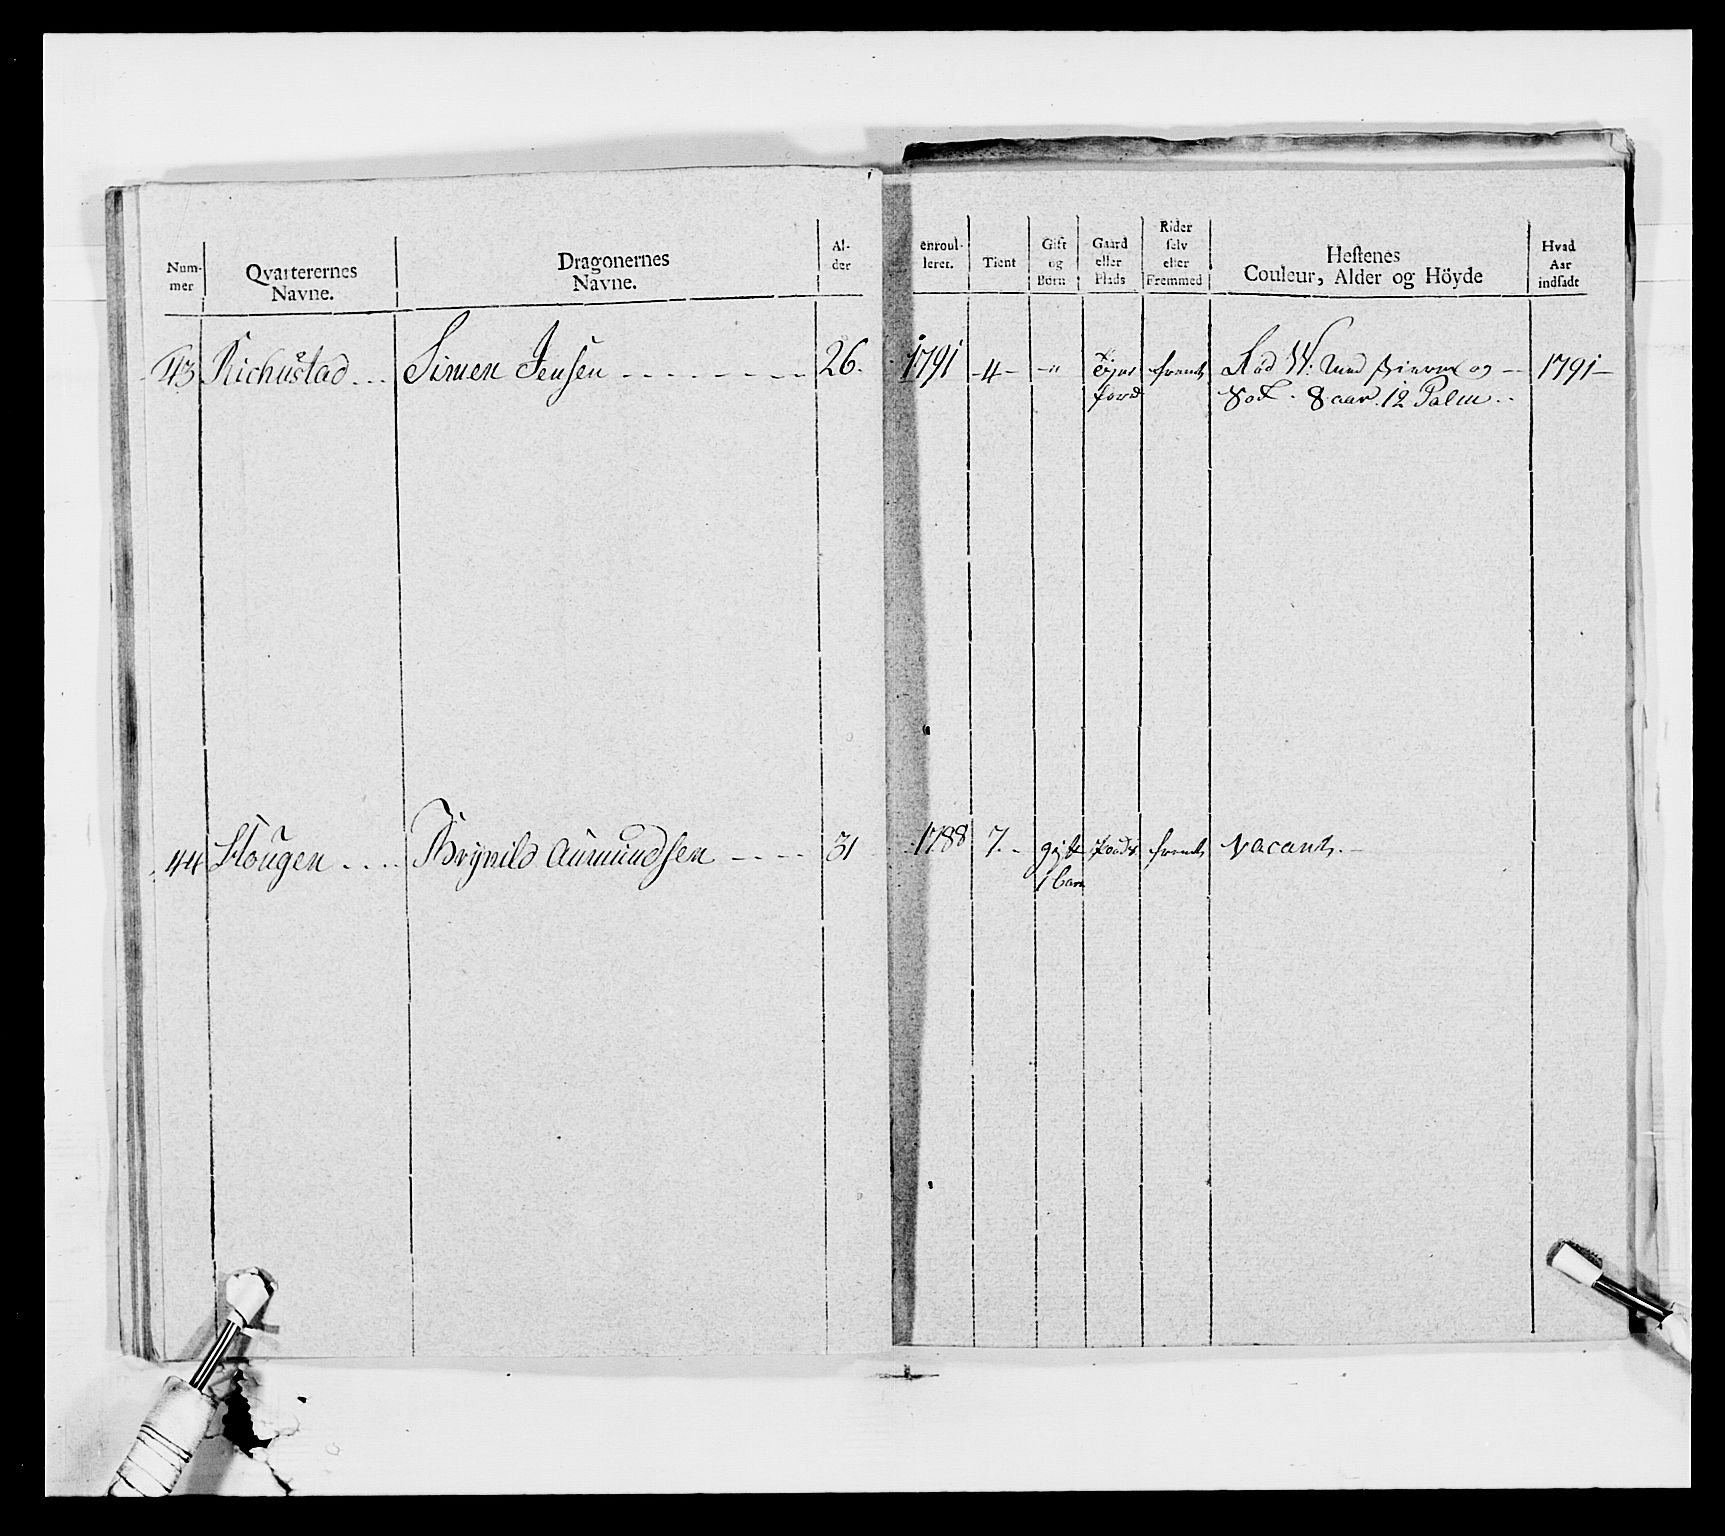 Num-
mer
Qvarterernes
Navne.
Dragonernes
Navne.
Al-
der
enroul-
leret.
Tient
Gift
og
Børn
Gaard
eller
Plads
Rider
selv
eller
Fremmed
Hestenes
Couleur, Alder og Höyde
Hvad
Aar
indsadt
43 Kichustad Simen Jensen 26. 1791 4 - " fremt Rød W: med og 1791
8 aar. 12 Palm.
44 Hougen Brynild Aumundsen 31 1788 7. gift fremt vacant.
1 barn